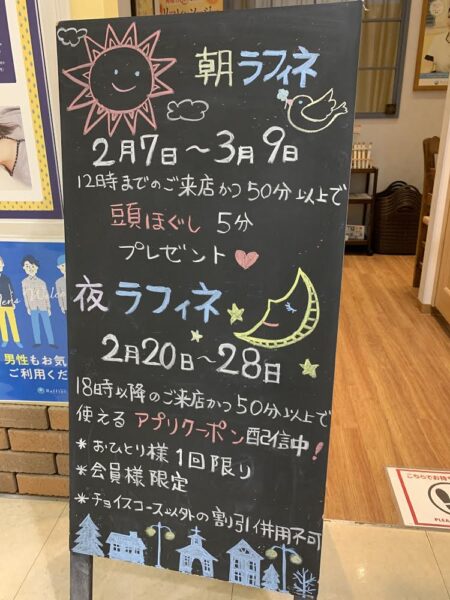 朝ラフィネ
2月7日～3月9日
12時までのご来店かつ50分以上で
頭ほぐし 5分
プレゼント
夜ラフィネ
2月20日～28日
18時以降のご来店かつ50分以上で
使える アプリクーポン配信中!
*おひとり様1回限り
*会員様限定
*チョイスコース以外の割引併用不可
男性もお気
ご利用くだ
こちらでお待
PLEA